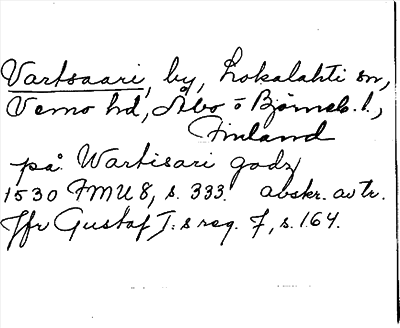 Vartsaari, by, Lokalahti sn,
Vemo hd, Åbo o Björneb. l.,
Finland
på Wartisari godz
1530 FMU 8, s. 333. avskr. av tr.
Jfr Gustaf I:s reg. 7, s. 164.